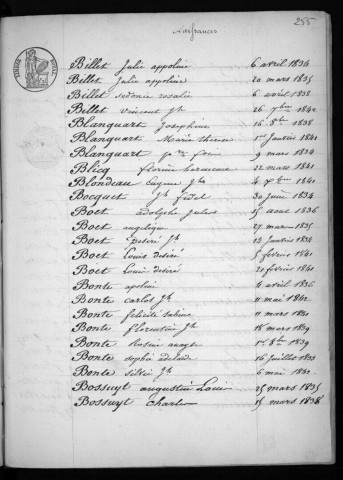 Naissances
255
Billet Julie appoline 6 avril 1834
Billet Julie appoline 20 mars 1835
Billet sidonie rosalie 6 avril 1838
Billet vincent Jh 26 7bre 1842
Blanquart Josephine 16 8bre 1838
Blanquart Marie therese 1er Janvier 1841
Blanquart 9 mars 1834
Blicq florine 22 mars 1841
Blondeau Eugene Jh 1840
Bocquet Jh fidel 30 juin 1834
Boet adolphe Jules 15 aout 1836
Boet angelique 27 mars 1835
Boet Desiré Jh 12 Janvier 1834
Boet Louis desiré 5 fevrier 1841
Boet Louis desiré 20 février 1841
Bonte apoline 4 avril 1836
Bonte carlos Jh 11 mai 1842
Bonte felicité sabine 11 mars
Bonte florentin Jh 18 mars 1839
Bonte 1er 8bre 1839
Bonte sophie adelaide 16 Juillet
Bonte Jh 6 mai
Bossuyt augustin Louis 25 mars 1835
Bossuyt Charles 15 mars 1838